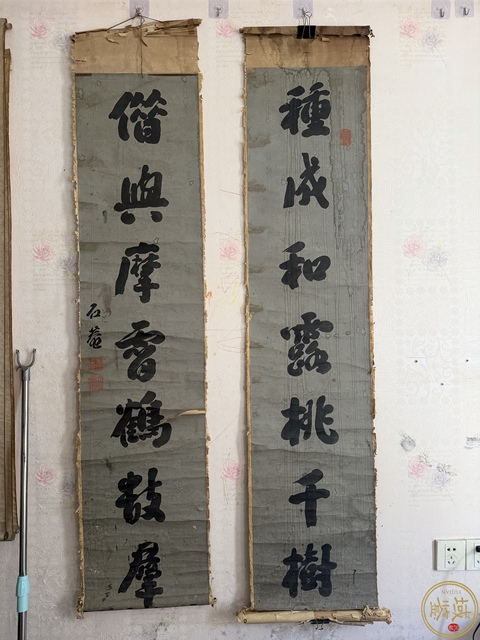 種成和露桃千樹
借與摩霄鶴數羣
石菴